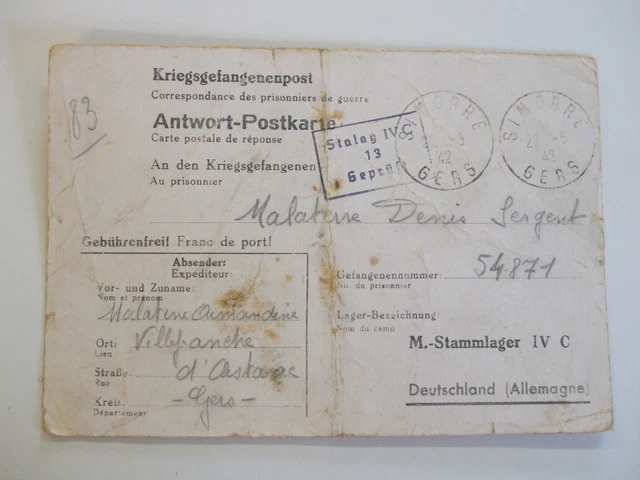 Kriegsgefangenenpost
Correspondance des prisonniers de guerre
83
Antwort-Postkarte
Carte postale de réponse
An den Kriegsgefangenen
Au prisonnier
Stalag IV
13
Geprüft
SIMORRE
22 -6
42
GERS
SIMORRE
22 -6
42
GERS
Malaterre Denis Sergent
Gebührenfrei! Franc de port!
Absender:
Expéditeur:
Vor- und Zuname:
Nom et prénom
Malaterre Armandine
Ort: Villefranche
Lieu
Straße: d'Astarac
Rue
Kreis: - Gers -
Département
Gefangenennummer: 54871
No. du prisonnier
Lager-Bezeichnung:
Nom du camp
M.-Stammlager IV C
Deutschland (Allemagne)